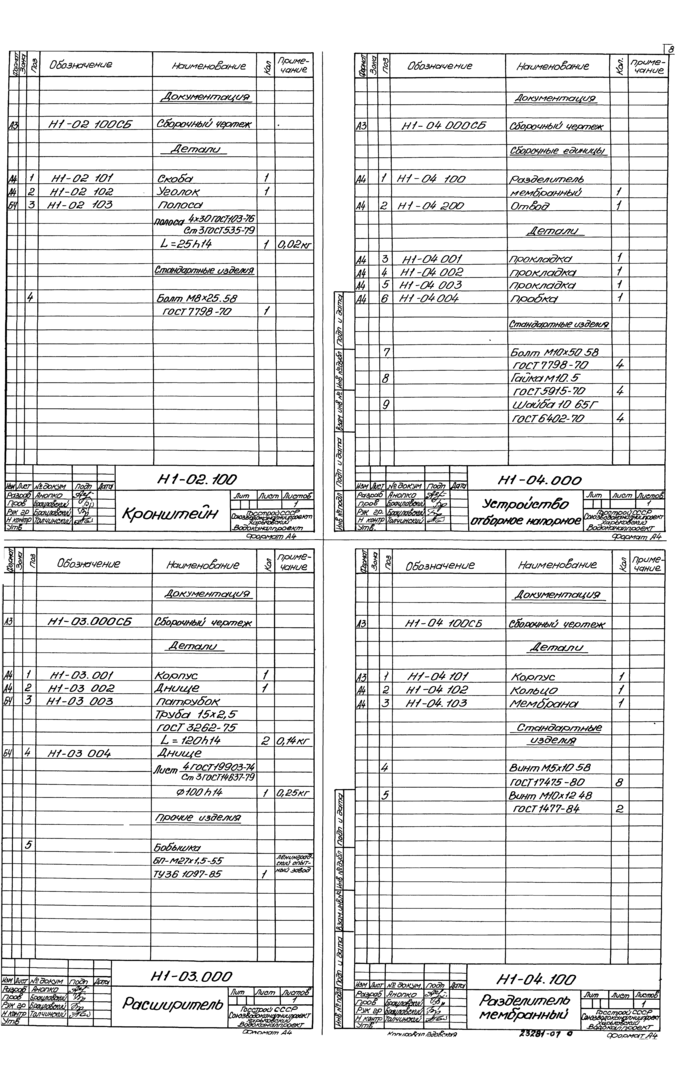 8
Формат Зона Поз Обозначение Наименование Кол Приме-чание
Документация
А3 Н1-02 100СБ Сборочный чертеж
Детали
А4 1 Н1-02 101 Скоба 1
А4 2 Н1-02 102 Уголок 1
БЧ 3 Н1-02 103 Полоса
Полоса 4х30 ГОСТ103-76
Ст 3 ГОСТ535-79
L=25h14 1 0,02кг
Стандартные изделия
4 Болт М8×25.58
ГОСТ 7798-70 1
Н1-02.100
Изм Лист № докум Подп Дата
Разраб Анопко
Пров Брацловский
Рук гр. Брацловский
Н контр Талчинский
Утв.
Кронштейн
Лит Лист Листов
1
Госстрой СССР
Союзводоканалпроект
Харьковский
Водоканалпроект
Формат А4
Формат Зона Поз Обозначение Наименование Кол. Приме-чание
Документация
А3 Н1-04.000СБ Сборочный чертеж
Сборочные единицы
А4 1 Н1-04 100 Разделитель
мембранный 1
А4 2 Н1-04 200 Отвод 1
Детали
А4 3 Н1-04 001 Прокладка 1
А4 4 Н1-04 002 Прокладка 1
А4 5 Н1-04 003 Прокладка 1
А4 6 Н1-04 004 Пробка 1
Стандартные изделия
7 Болт М10×50 58
ГОСТ 7798-70 4
8 Гайка М10.5
ГОСТ 5915-70 4
9 Шайба 10 65Г
ГОСТ 6402-70 4
Инв № подл Подп и дата Взам инв № Инв № дубл Подп и дата
Н1-04.000
Изм Лист № докум Подп Дата
Разраб Анопко
Пров Брацловский
Рук гр. Брацловский
Н контр Талчинский
Утв.
Устройство
отборное напорное
Лит Лист Листов
1
Госстрой СССР
Союзводоканалпроект
Харьковский
Водоканалпроект
Формат А4
Формат Зона Поз Обозначение Наименование Кол Приме-чание
Документация
А3 Н1-03.000СБ Сборочный чертеж
Детали
А4 1 Н1-03.001 Корпус 1
А4 2 Н1-03 002 Днище 1
БЧ 3 Н1-03 003 Патрубок
Труба 15×2,5
ГОСТ 3262-75
L=120h14 2 0,14кг
БЧ 4 Н1-03 004 Днище
Лист 4 ГОСТ19903-74
Ст 3 ГОСТ14637-79
Ф100h14 1 0,25кг
Прочие изделия
5 Бобышка
БП-М27×1,5-55
ТУ36 1097-85 1
Ленинград-ский опыт-ный завод
Н1-03.000
Изм Лист № докум Подп Дата
Разраб Анопко
Пров Брацловский
Рук гр Брацловский
Н контр Талчинский
Утв
Расширитель
Лит Лист Листов
1
Госстрой СССР
Союзводоканалниипроект
Харьковский
Водоканалпроект
Формат А4
Формат Зона Поз Обозначение Наименование Кол Приме-чание
Документация
А3 Н1-04 100СБ Сборочный чертеж
Детали
А3 1 Н1-04 101 Корпус 1
А4 2 Н1-04 102 Кольцо 1
А4 3 Н1-04.103 Мембрана 1
Стандартные
изделия
4 Винт М5×10 58
ГОСТ 17475-80 8
5 Винт М10×12 48
ГОСТ 1477-84 2
Инв № подл Подп и дата Взам.инв.№ Инв № дубл Подп и дата
Н1-04.100
Изм Лист № докум Подп Дата
Разраб Анопко
Пров Брацловский
Рук гр Брацловский
Н контр Талчинский
Утв
Разделитель
мембранный
Лит Лист Листов
1
Госстрой СССР
Союзводоканалниипроект
Харьковский
Водоканалпроект
Копировал 23281-07 9 Формат А4